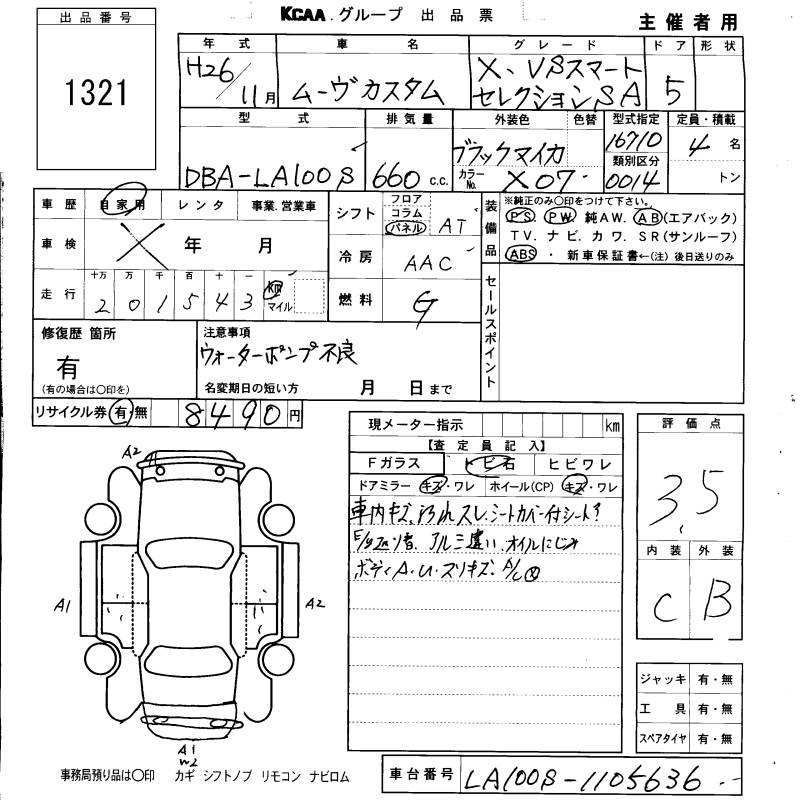 出品番号
1321
KCAA.グループ 出品票
主催者用
年式 車名 グレード ドア 形状
H26/11月 ムーヴカスタム X、VSスマート セレクションSA 5
型式 排気量 外装色 色替 型式指定 定員・積載
DBA-LA100S 660 c.c. ブラックマイカ 16710 4名
カラーNo. X07 類別区分 0014 トン
車歴 自家用 レンタ 事業.営業車
車検 × 年 月
十万 万 千 百 十 一
走行 201543 km マイル
シフト フロア コラム パネル AT
冷房 AAC
燃料 G
装備品
※純正のみ〇印をつけて下さい。
PS. PW. 純AW. AB(エアバック)
TV. ナビ. カワ. SR(サンルーフ)
ABS ・ 新車保証書←(注)後日送りのみ
セールスポイント
修復歴 箇所
有
(有の場合は〇印を)
注意事項
ウォーターポンプ不良
名変期日の短い方 月 日まで
リサイクル券 有・無 8490円
現メーター指示 km
【査定員記入】
Fガラス トビ石 ヒビワレ
ドアミラー キズ・ワレ ホイール(CP) キズ・ワレ
車内キズ、スレ、シートカバー付シート
アルミ違い、オイルにじみ
ボディA・U・スリキズ
評価点
3.5
内装 外装
C B
A2
A1
A2
A1
W2
ジャッキ 有・無
工具 有・無
スペアタイヤ 有・無
事務局預り品は〇印 カギ シフトノブ リモコン ナビロム
車台番号 LA100S-1105636